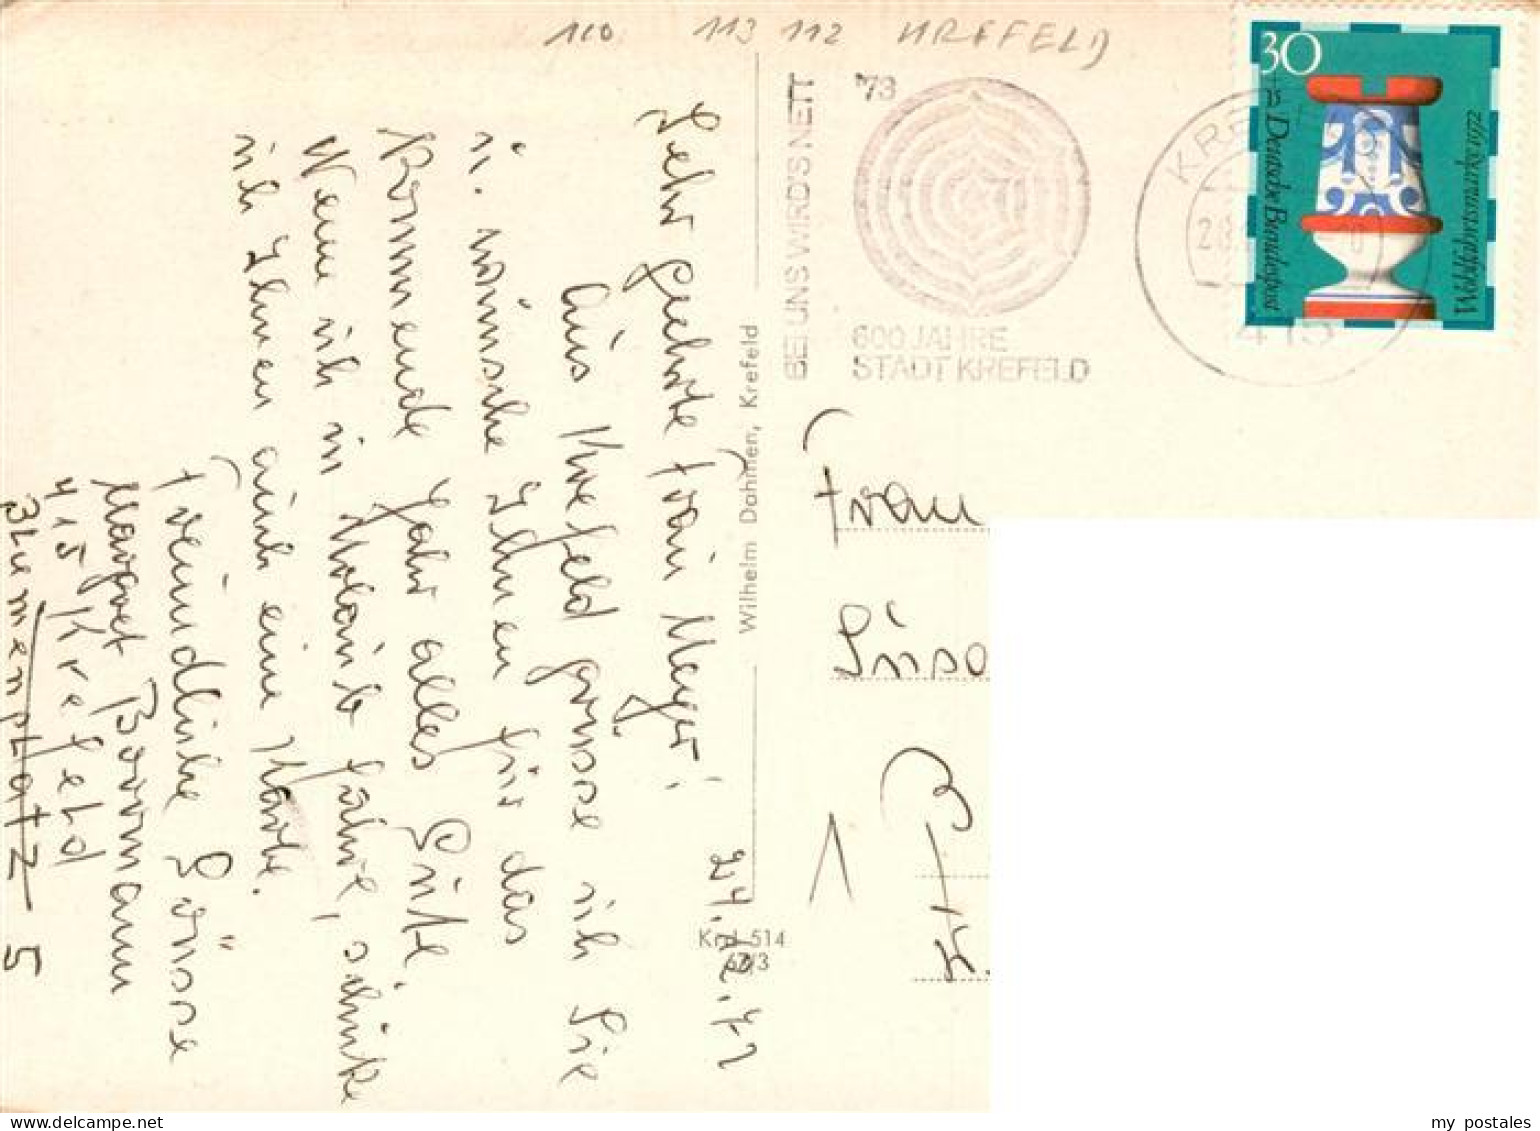 110 113 112 KREFELD
BEI UNS WIRD'S NETT
'73
600 JAHRE
STADT KREFELD
KREFELD
415
30
+15 Deutsche Bundespost
Wohlfahrtsmarke 1972
24.12.72
Sehr geehrte Frau Meyer!
Aus Krefeld grüsse ich Sie
u. wünsche Ihnen für das
Kommende Jahr alles Gute
Wenn ich in Urlaub fahre, schicke
ich Ihnen auch eine Karte.
Freundliche Grüsse
Margret Borrmann
415 Krefeld
Blumenplatz 5
Wilhelm Dahmen, Krefeld
Krd 514
Frau
1
my_postales